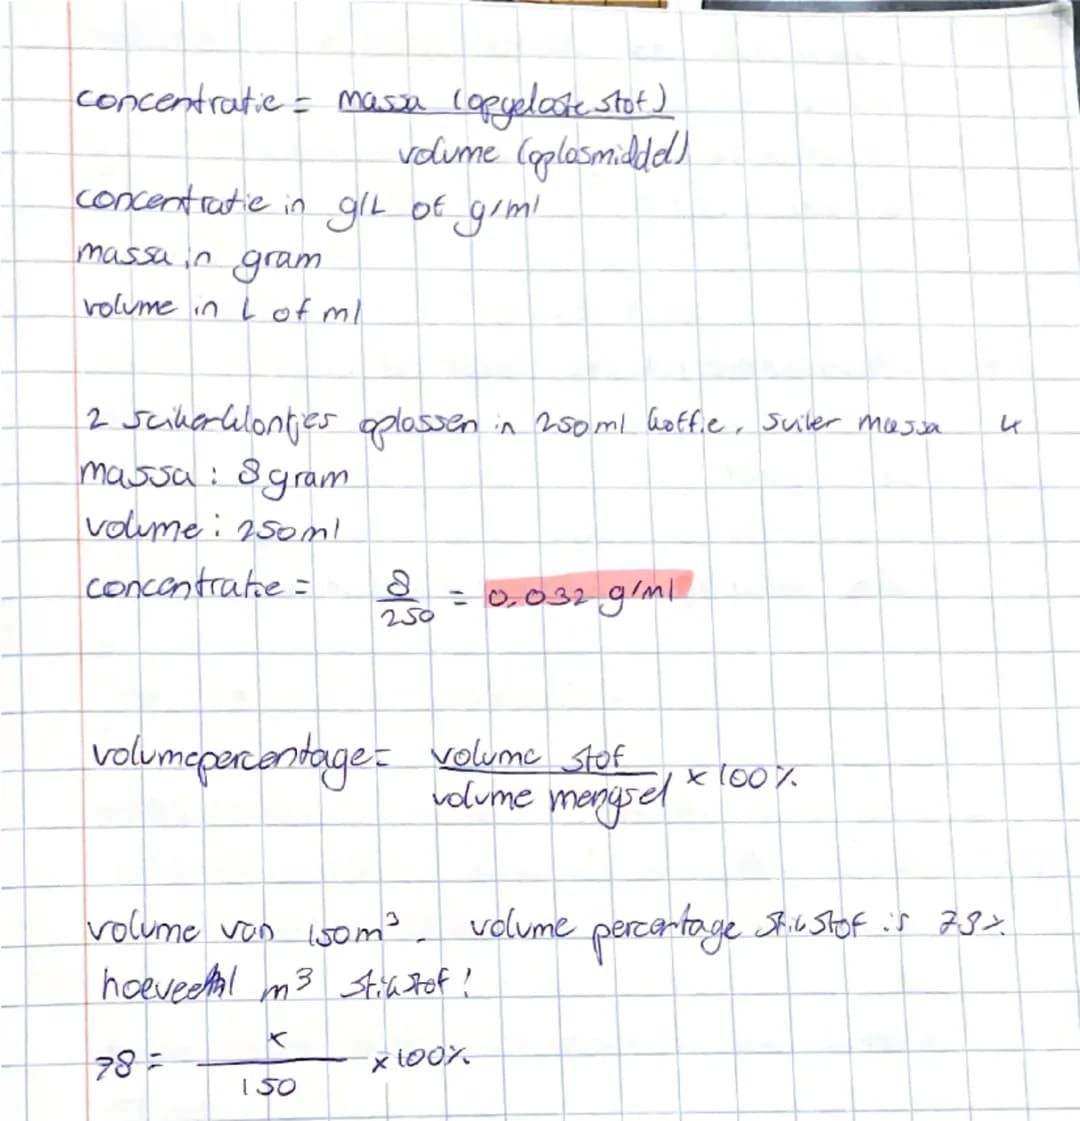 concentratie = massa (opgeloste stof)
volume (oplosmiddel)
concentratie in g/L of g/ml
massa in gram
volume in L of ml
2 suikerklontjes oplossen in 250ml koffie, suiker massa 4
massa : 8 gram
volume : 250ml
concentratie = 8 / 250 = 0,032 g/ml
volumepercentage = volume stof / volume mengsel x 100%
volume van 150m³. volume percentage stikstof is 78%
hoeveel m³ stikstof!
78 = x / 150 x 100%